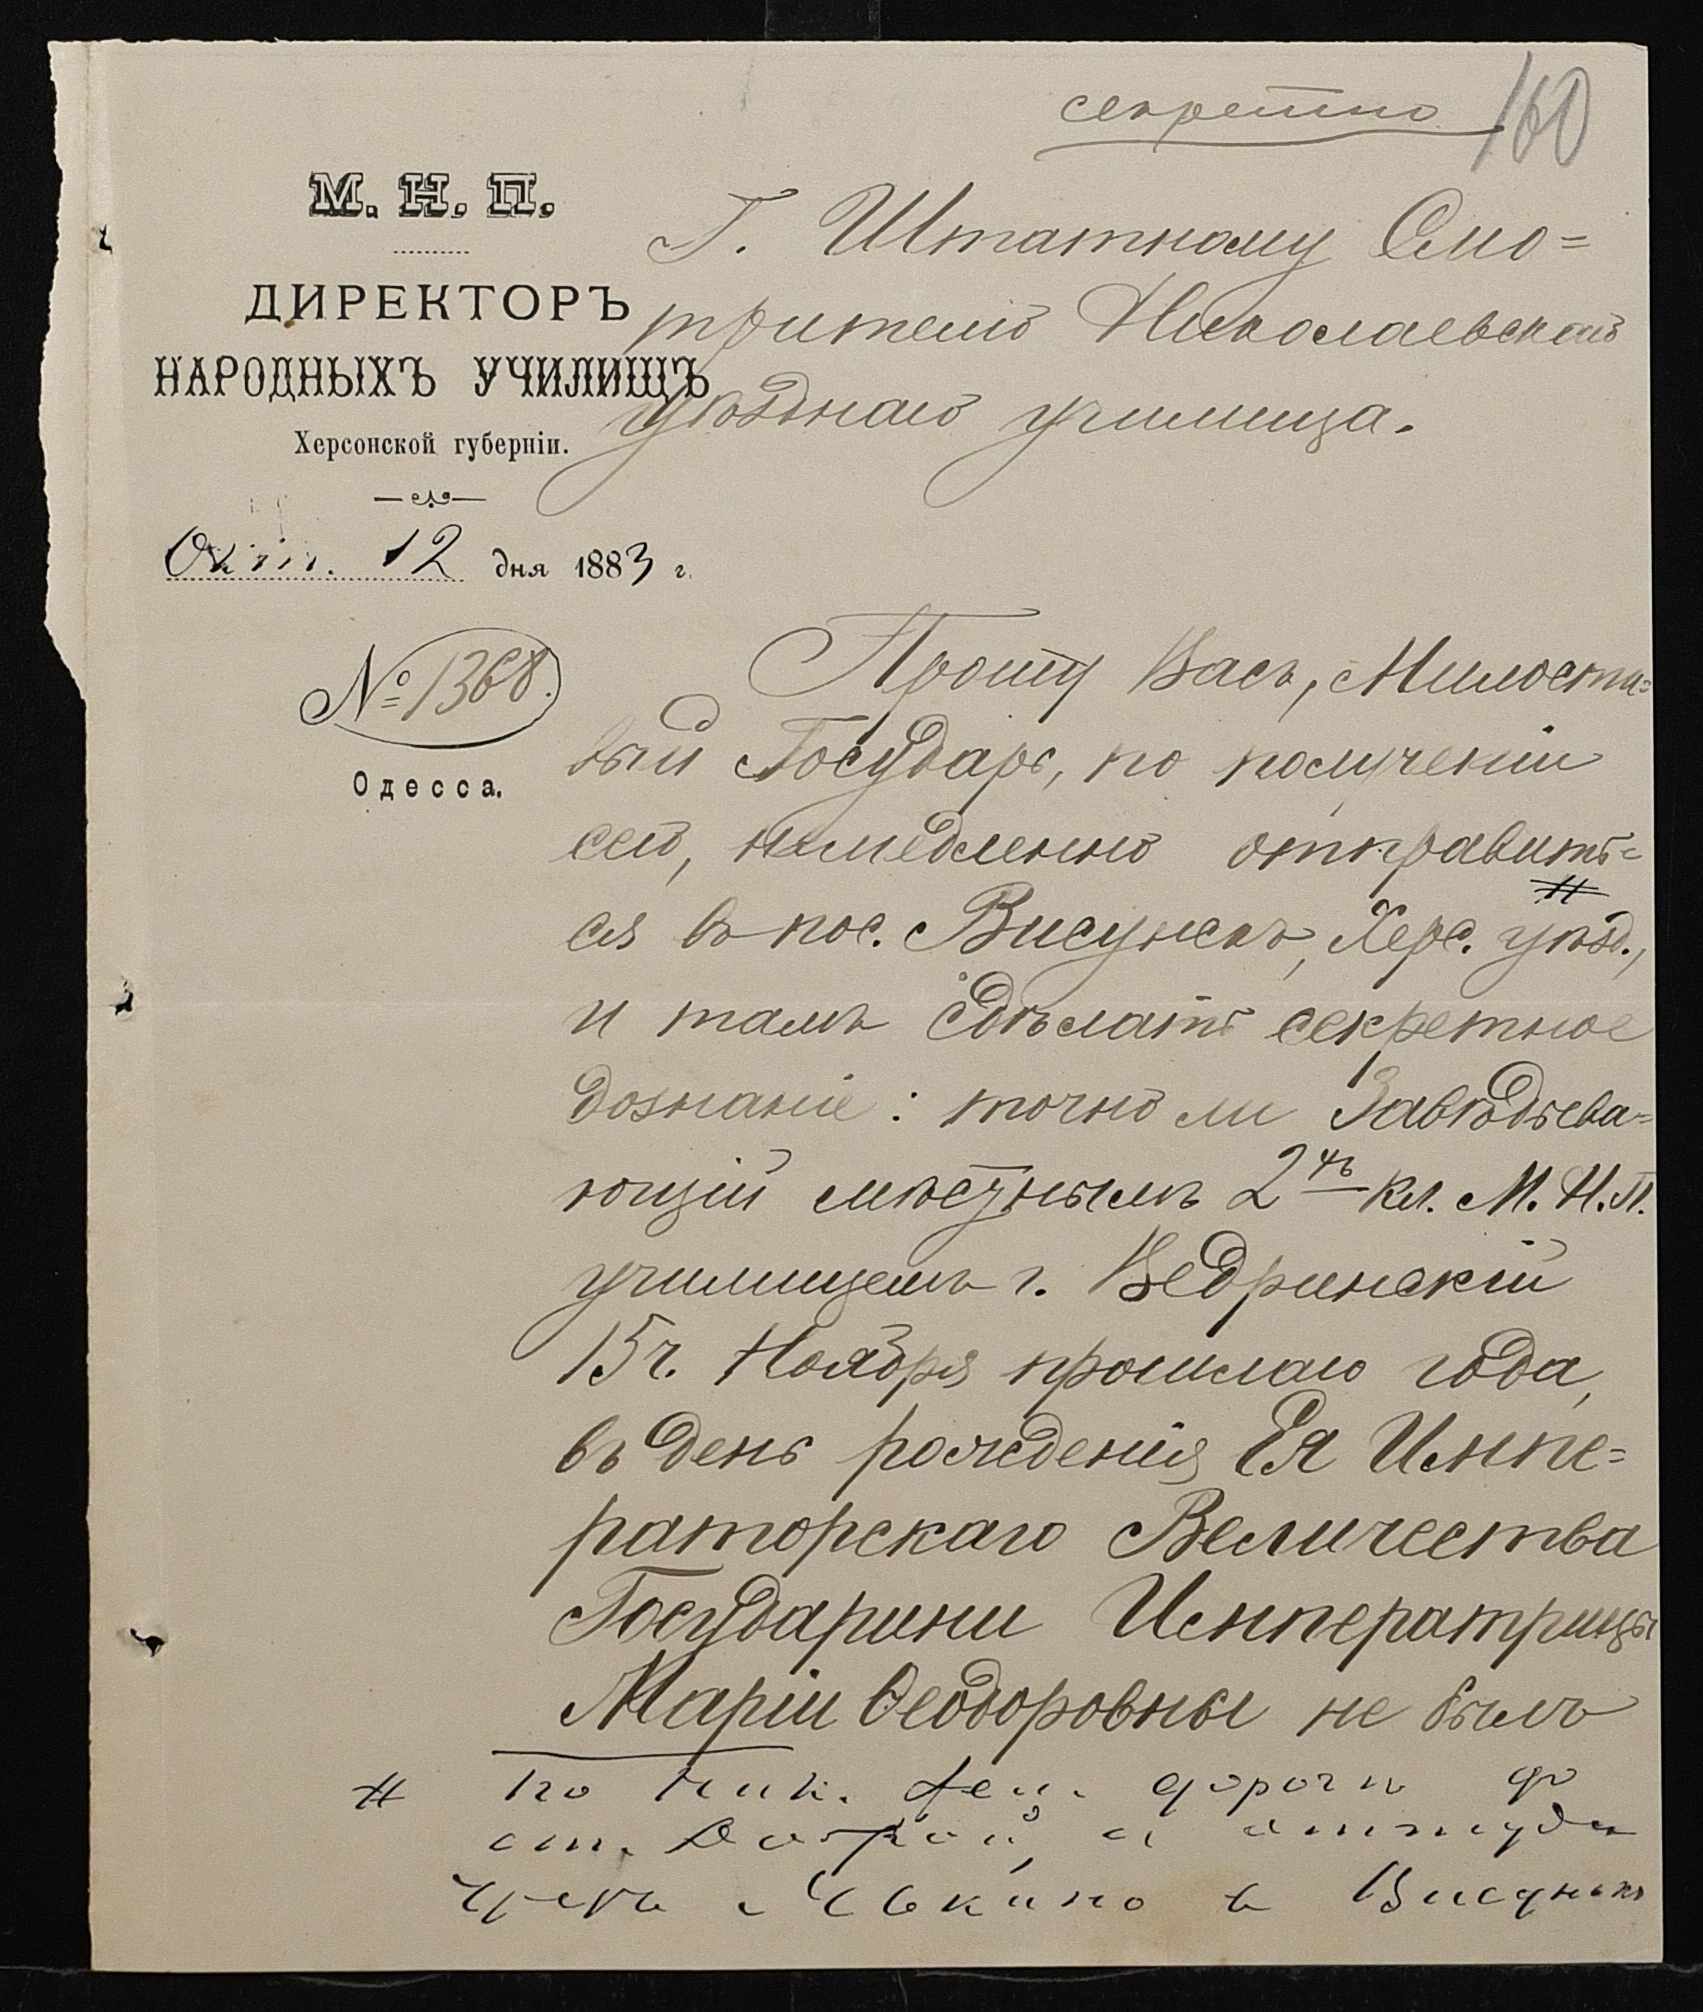 секретно
160
М. Н. П.
ДИРЕКТОРЪ
НАРОДНЫХЪ УЧИЛИЩЪ
Херсонской губерніи.
Окт. 12 дня 1883 г.
№ 1368.
Одесса.
Г. Штатному Смо=
трителю Николаевскаго
уѣзднаго училища.
Прошу Васъ, Милости=
вый Государь, по полученіи
сего, немедленно отправить=
#
ся въ пос. Висунскъ, Херс. уѣзд.,
и тамъ сдѣлать секретное
дознаніе: точно ли Завѣдыва=
ющій мѣстнымъ 2хъ кл. М. Н. П.
училищемъ г. Ведринскій
15 ч. Ноября прошлаго года,
въ день рожденія Ея Импе=
раторскаго Величества
Государини Императрицы
Маріи Ѳеодоровны не былъ
# по Ник. жел. дороги до
ст. Доброй, а оттуда
чрезъ въ Висунскъ